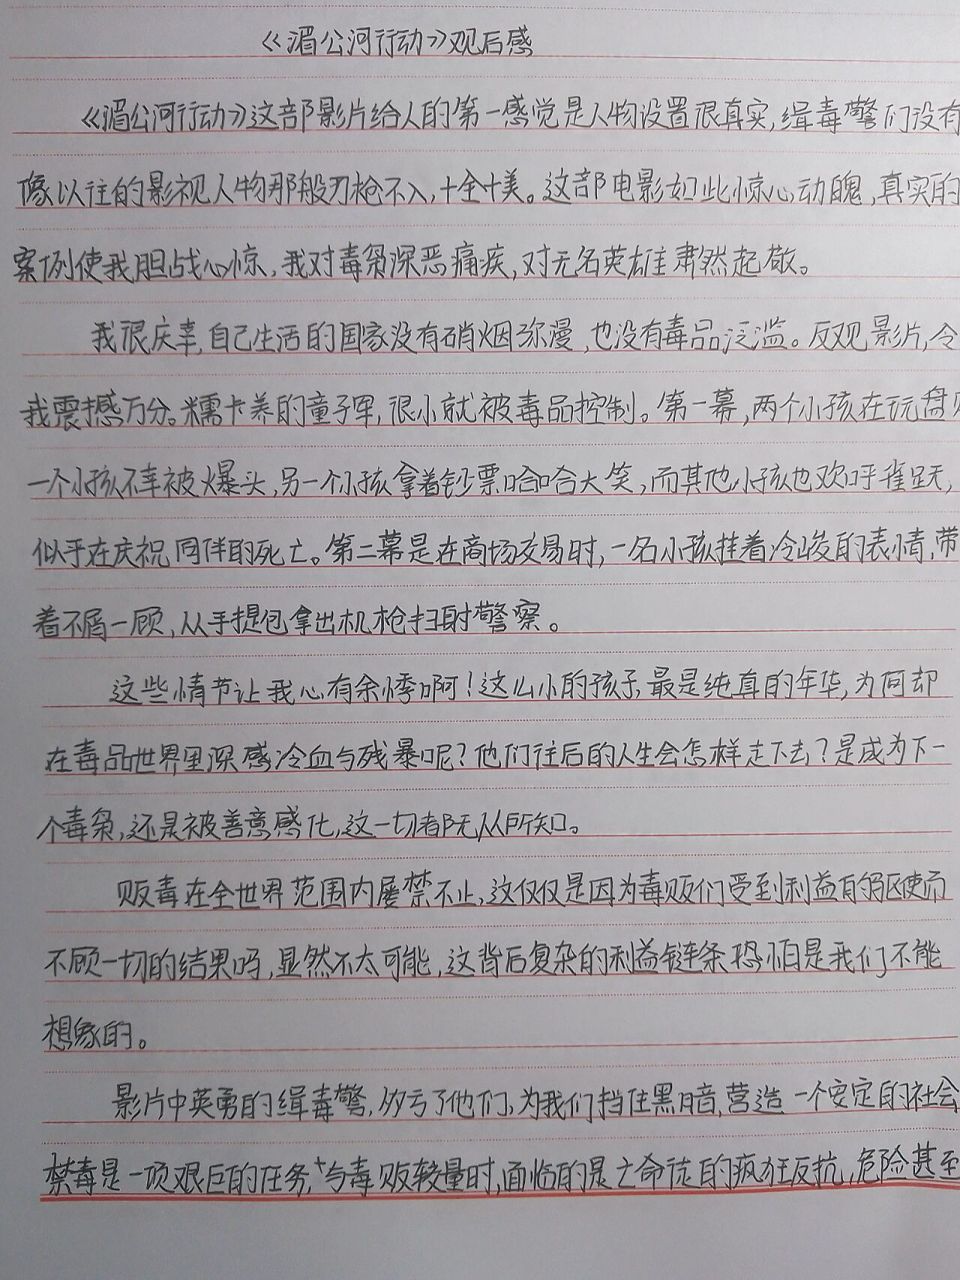 《湄公河行动》观后感
《湄公河行动》这部影片给人的第一感觉是人物设置很真实,缉毒警们没有
像以往的影视人物那般刃枪不入,十全十美。这部电影如此惊心动魄,真实的
案例使我胆战心惊,我对毒枭深恶痛疾,对无名英雄肃然起敬。
我很庆幸,自己生活的国家没有硝烟弥漫,也没有毒品泛滥。反观影片,令
我震撼万分。糯卡养的童子军,很小就被毒品控制。第一幕,两个小孩在玩盘
一个小孩不幸被爆头,另一个小孩拿着钞票哈哈大笑,而其他小孩也欢呼雀跃,
似乎在庆祝同伴的死亡。第二幕是在商场交易时,一名小孩挂着冷峻的表情,带
着不屑一顾,从手提包拿出机枪扫射警察。
这些情节让我心有余悸啊!这么小的孩子,最是纯真的年华,为何却
在毒品世界里深感冷血与残暴呢?他们往后的人生会怎样走下去?是成为下一
个毒枭,还是被善意感化,这一切都无从所知。
贩毒在全世界范围内屡禁不止,这仅仅是因为毒贩们受到利益的驱使而
不顾一切的结果吗,显然不太可能,这背后复杂的利益链条恐怕是我们不能
想象的。
影片中英勇的缉毒警,多亏了他们,为我们挡住黑暗,营造一个安定的社会
禁毒是一项艰巨的任务,与毒贩较量时,面临的是亡命徒的疯狂反抗,危险甚至